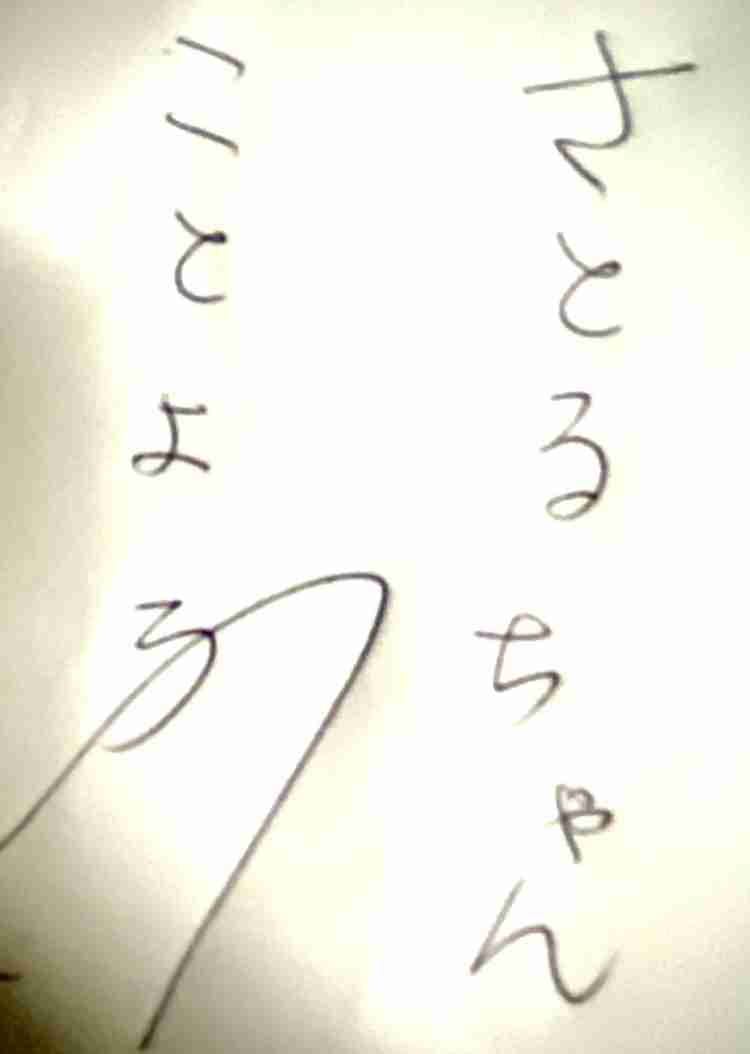 さとるちゃん
ことよろ